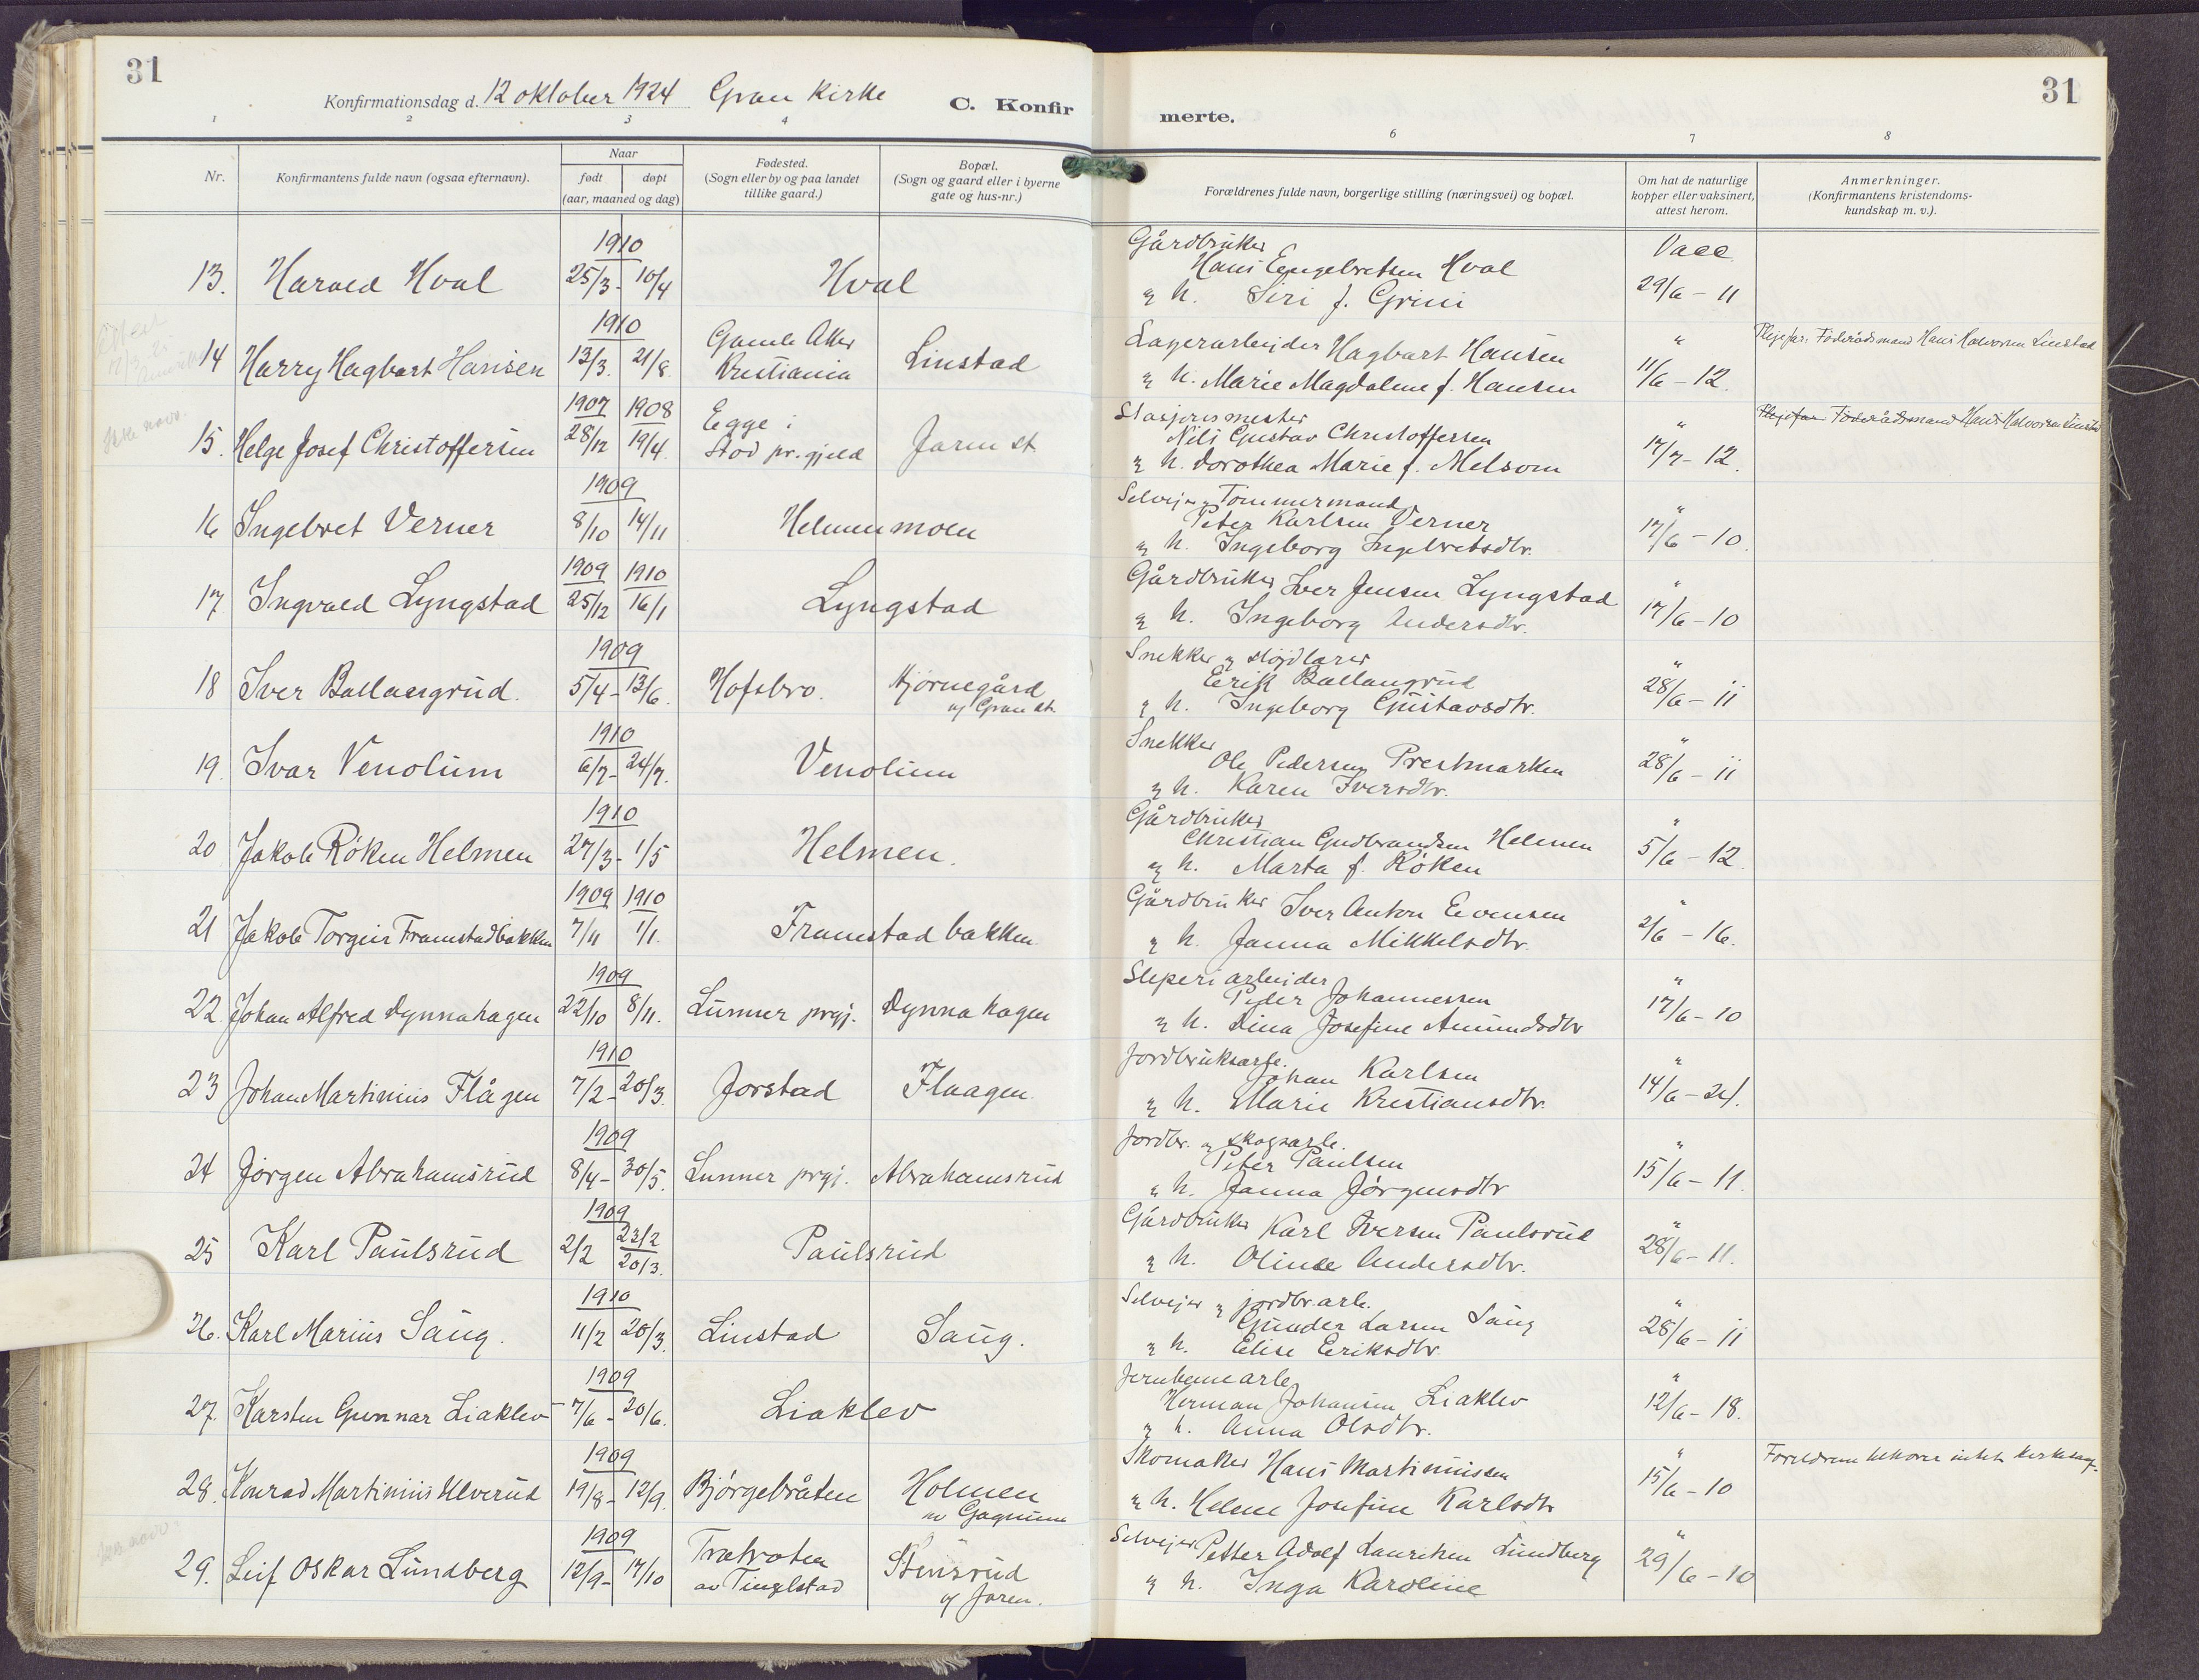 31
Konfirmationsdag d. 12 oktober 1924 Gran Kirke
C. Konfir
1 2 3 4
Nr.
Konfirmantens fulde navn (ogsaa efternavn).
Naar
født døpt
(aar, maaned og dag)
Fødested.
(Sogn eller by og paa landet
tillike gaard.)
Bopæl.
(Sogn og gaard eller i byerne
gate og hus-nr.)
1910
13. Harald Hval 25/3 - 10/4 Hval
1910
14 Harry Hagbart Hansen 13/3. 21/8. Gamle Aker
Kristiania Linstad
1907 1908
15. Helge Josef Christoffersen 28/12 19/4 Egge i
Stod pr.gjeld Jaren st.
1909
16 Ingebret Verner 8/10 14/11 Helmenmoen
1909 1910
17 Ingvald Lyngstad 25/12 16/1 Lyngstad
1909
18 Iver Ballangrud. 5/4 - 13/6. Hofsbro. Hjørnegård
v/ Gran st.
1910
19. Ivar Venolum 6/7 - 24/7. Venolum
1910
20 Jakob Røken Helmen 27/3 - 1/5 Helmen.
1909 1910
21 Jakob Torgeir Framstadbakken 7/11 1/1. Framstadbakken
1909
22. Johan Alfred Dynnahagen 22/10 8/11. Lunner prgj. Dynnahagen
1910
23 Johan Martinius Flågen 7/2 - 20/3. Jorstad Flaagen.
1909
24 Jørgen Abrahamsrud 8/4 - 30/5. Lunner prgj. Abrahamsrud
1909
25 Karl Paulsrud 2/2 23/2
20/3. Paulsrud
1910
26. Karl Marius Saug. 11/2 20/3. Linstad Saug.
1909
27. Karsten Gunnar Liaklev 7/6 - 20/6. Liaklev
1909
28. Konrad Martinius Ulverud 19/8 - 12/9. Bjørgebråten Holmen
av Gagnum
1909
29. Leif Oskar Lundberg 12/9 - 17/10 Trætroten
av Tinglstad Stensrud
v/ Jaren.
31
merte.
6 7 8
Forældrenes fulde navn, borgerlige stilling (næringsvei) og bopæl.
Om hat de naturlige
kopper eller vaksinert,
attest herom.
Anmerkninger.
(Konfirmantens kristendoms-
kundskap m. v.).
Gårdbruker
Hans Engelbretsen Hval
og h. Siri f. Grini
Vacc.
29/6 - 11
Lagerarbeider Hagbart Hansen
og h. Marie Magdalene f. Hansen
" 11/6 - 12.
Plejefar: Føderådsmand Hans Halvorsen Linstad
Stasjonsmester
Nils Gustav Christoffersen
og h. Dorothea Marie f. Melsom
" 17/7 - 12.
Plejefar Føderådsmand Hans Halvorsen Linstad
Selvejer og Tømmermand
Peter Karlsen Verner
og h. Ingeborg Ingebretsdtr.
" 17/6 - 10.
Gårdbruker Iver Jensen Lyngstad
og h. Ingeborg Andersdtr.
" 17/6 - 10
Snekker og sløjdlærer
Erik Ballangrud
og h. Ingeborg Gustavsdtr.
" 28/6 - 11
Snekker
Ole Pedersen Prestmarken
og h. Karen Iversdtr.
" 28/6 - 11
Gårdbruker
Christian Gudbrandsen Helmen
og h. Marta f. Røken
" 5/6 - 12.
Gårdbruker Iver Anton Evensen
og h. Janna Mikkelsdtr.
" 2/6 - 16.
Sleperiarbeider
Peder Johannessen
og h. Dina Josefine Amundsdtr
" 17/6 - 10
Jordbruksarb.
Johan Karlsen
og h. Marie Kristiansdtr.
" 14/6 - 24.
Jordbr. og skogsarb.
Peter Paulsen
og h. Janna Jørgensdtr
" 15/6 - 11.
Gårdbruker Karl Iversen Paulsrud
og h. Oline Andersdtr.
" 28/6 - 11.
Selvejer og jordbr.arb.
Gunder Larsen Saug
og h. Elise Eriksdtr.
" 28/6 - 11
Jernbanearb.
Herman Johansen Liaklev
og h. Anna Olsdtr.
" 12/6 - 18.
Skomaker Hans Martinussen
og h. Helene Josefine Karlsdtr
" 15/6 - 10
Selvejer Petter Adolf Lauritzen Lundberg
og h. Inga Karoline
" 29/6 - 10